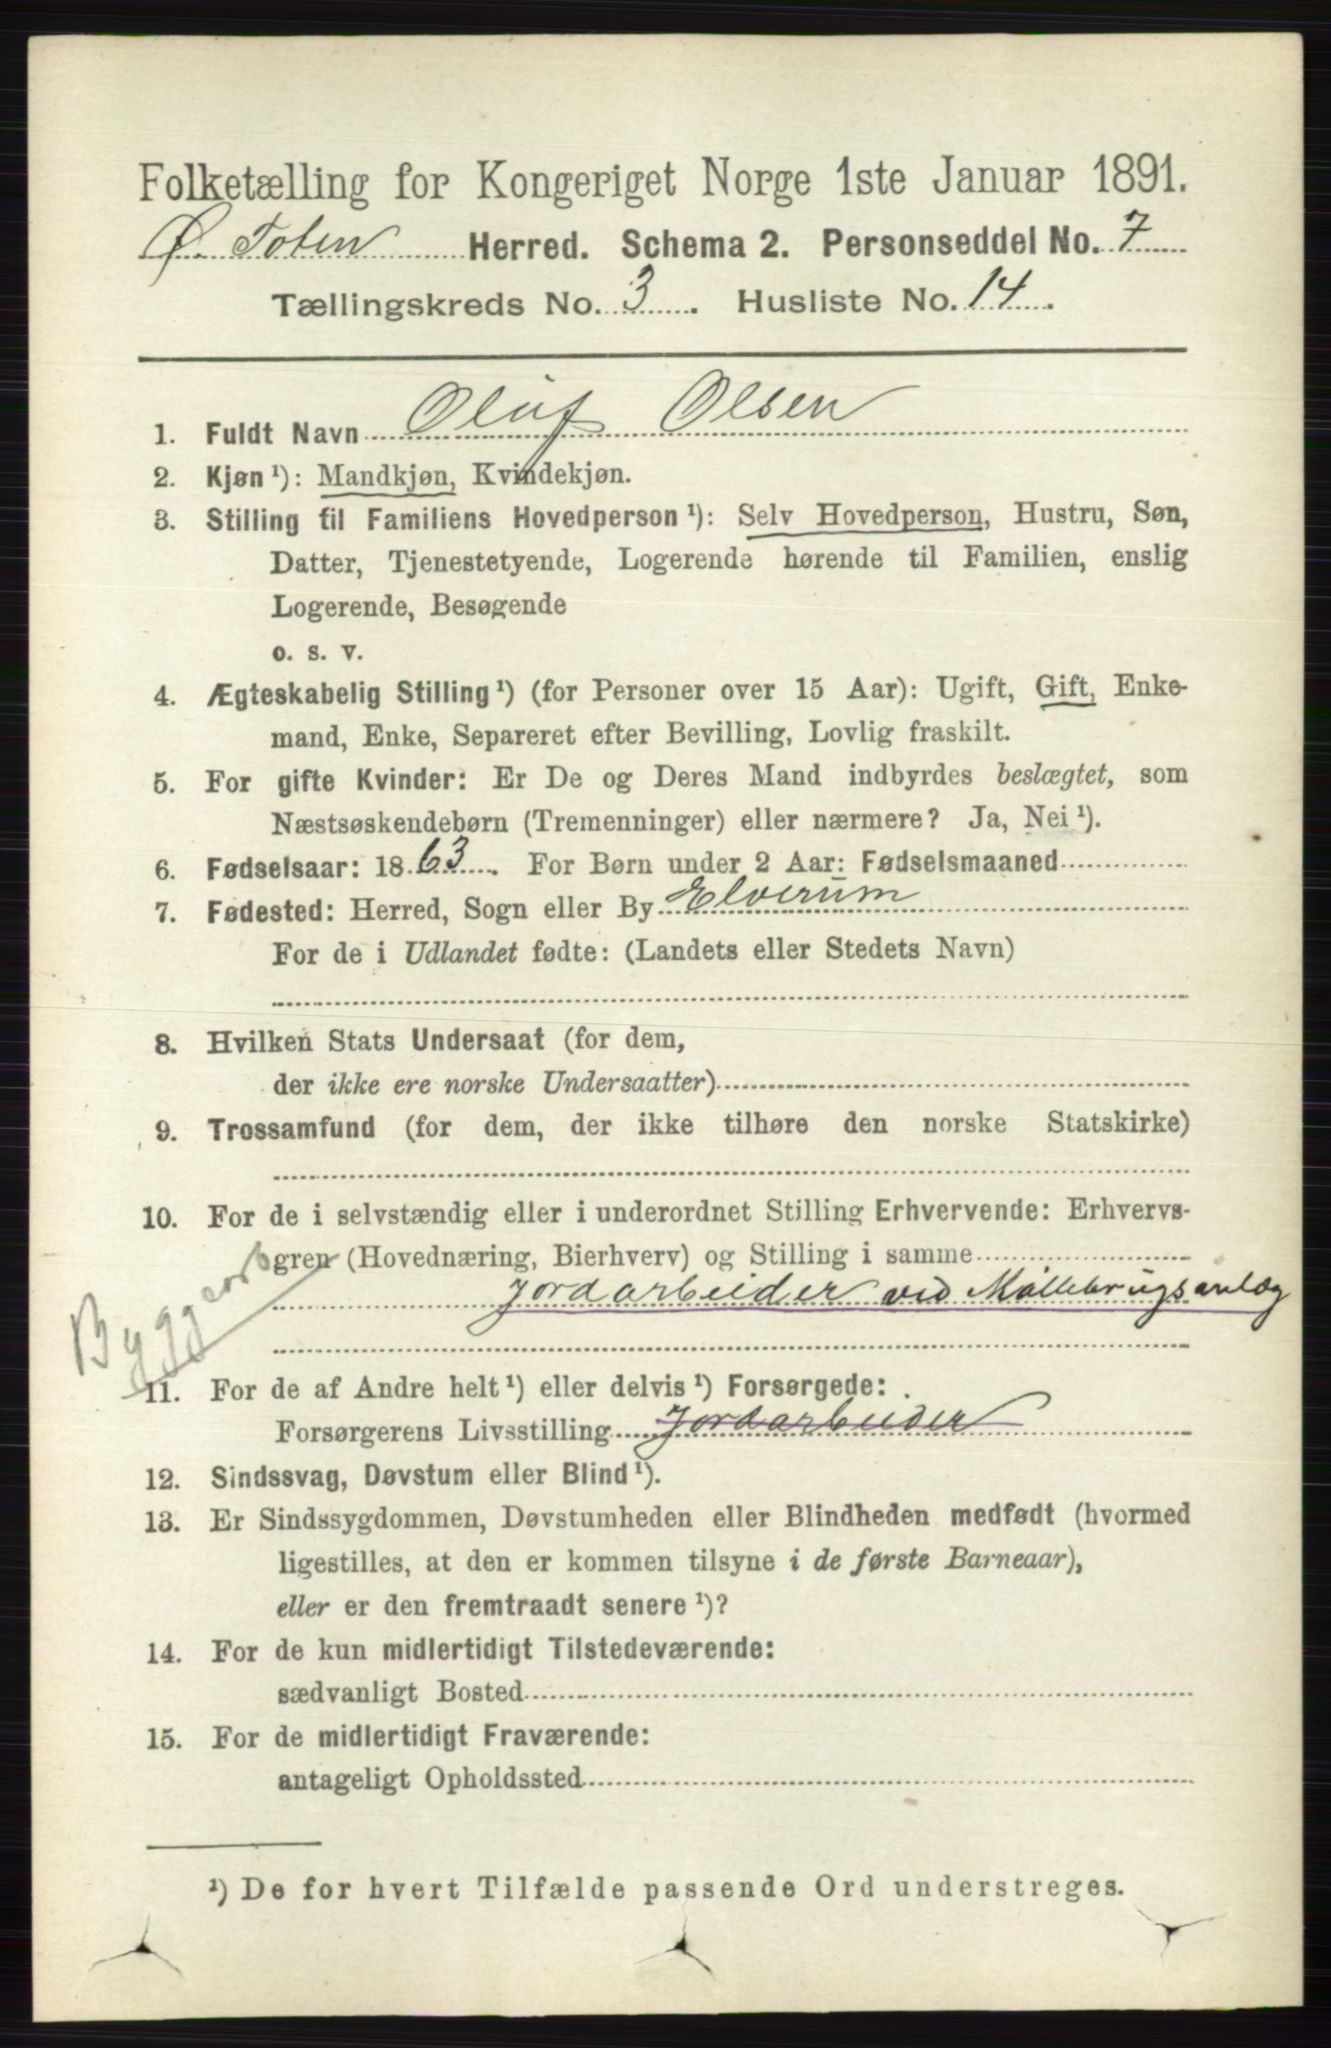 Folketælling for Kongeriget Norge 1ste Januar 1891.
Ø. Toten Herred. Schema 2. Personseddel No. 7
Tællingskreds No. 3. Husliste No. 14.
1. Fuldt Navn Oluf Olsen
2. Kjøn ¹): Mandkjøn, Kvindekjøn.
3. Stilling til Familiens Hovedperson ¹): Selv Hovedperson, Hustru, Søn,
Datter, Tjenestetyende, Logerende hørende til Familien, enslig
Logerende, Besøgende
o. s. v.
4. Ægteskabelig Stilling ¹) (for Personer over 15 Aar): Ugift, Gift, Enke-
mand, Enke, Separeret efter Bevilling, Lovlig fraskilt.
5. For gifte Kvinder: Er De og Deres Mand indbyrdes beslægtet, som
Næstsøskendebørn (Tremenninger) eller nærmere? Ja, Nei ¹).
6. Fødselsaar: 1863. For Børn under 2 Aar: Fødselsmaaned
7. Fødested: Herred, Sogn eller By Elverum
For de i Udlandet fødte: (Landets eller Stedets Navn)
8. Hvilken Stats Undersaat (for dem,
der ikke ere norske Undersaatter)
9. Trossamfund (for dem, der ikke tilhøre den norske Statskirke)
10. For de i selvstændig eller i underordnet Stilling Erhvervende: Erhvervs-
gren (Hovednæring, Bierhverv) og Stilling i samme
Jordarbeider ved Møllebrugsanlæg
Byggearb
11. For de af Andre helt ¹) eller delvis ¹) Forsørgede:
Forsørgerens Livsstilling Jordarbeider
12. Sindssvag, Døvstum eller Blind ¹).
13. Er Sindssygdommen, Døvstumheden eller Blindheden medfødt (hvormed
ligestilles, at den er kommen tilsyne i de første Barneaar),
eller er den fremtraadt senere ¹)?
14. For de kun midlertidigt Tilstedeværende:
sædvanligt Bosted
15. For de midlertidigt Fraværende:
antageligt Opholdssted
¹) De for hvert Tilfælde passende Ord understreges.